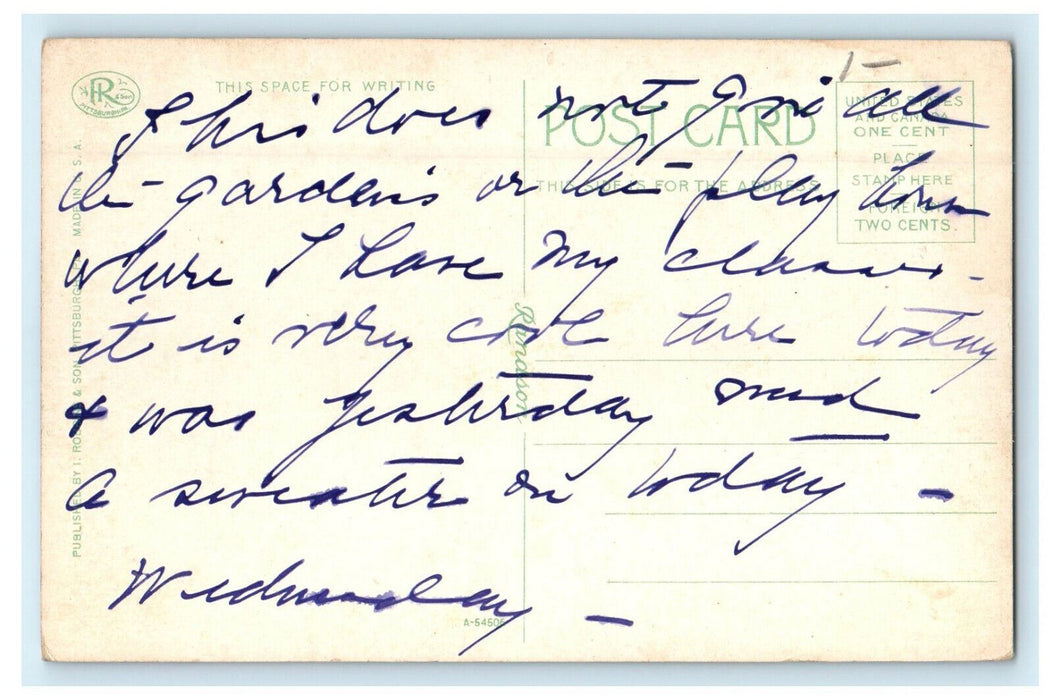 1 –
R
& Son
PITTSBURGH PA.
THIS SPACE FOR WRITING
POST CARD
THIS SIDE IS FOR THE ADDRESS
UNITED STATES
AND CANADA
ONE CENT
PLACE
STAMP HERE
FOREIGN
TWO CENTS.
This does not give all
the gardens or the play down
where I have my classes.
it is very cool here today
& was yesterday need
a sweater on today –
Wednesday –
Robbincon
PUBLISHED BY I. ROBBINS & SON, PITTSBURGH, PA. MADE IN U. S. A.
A-54506